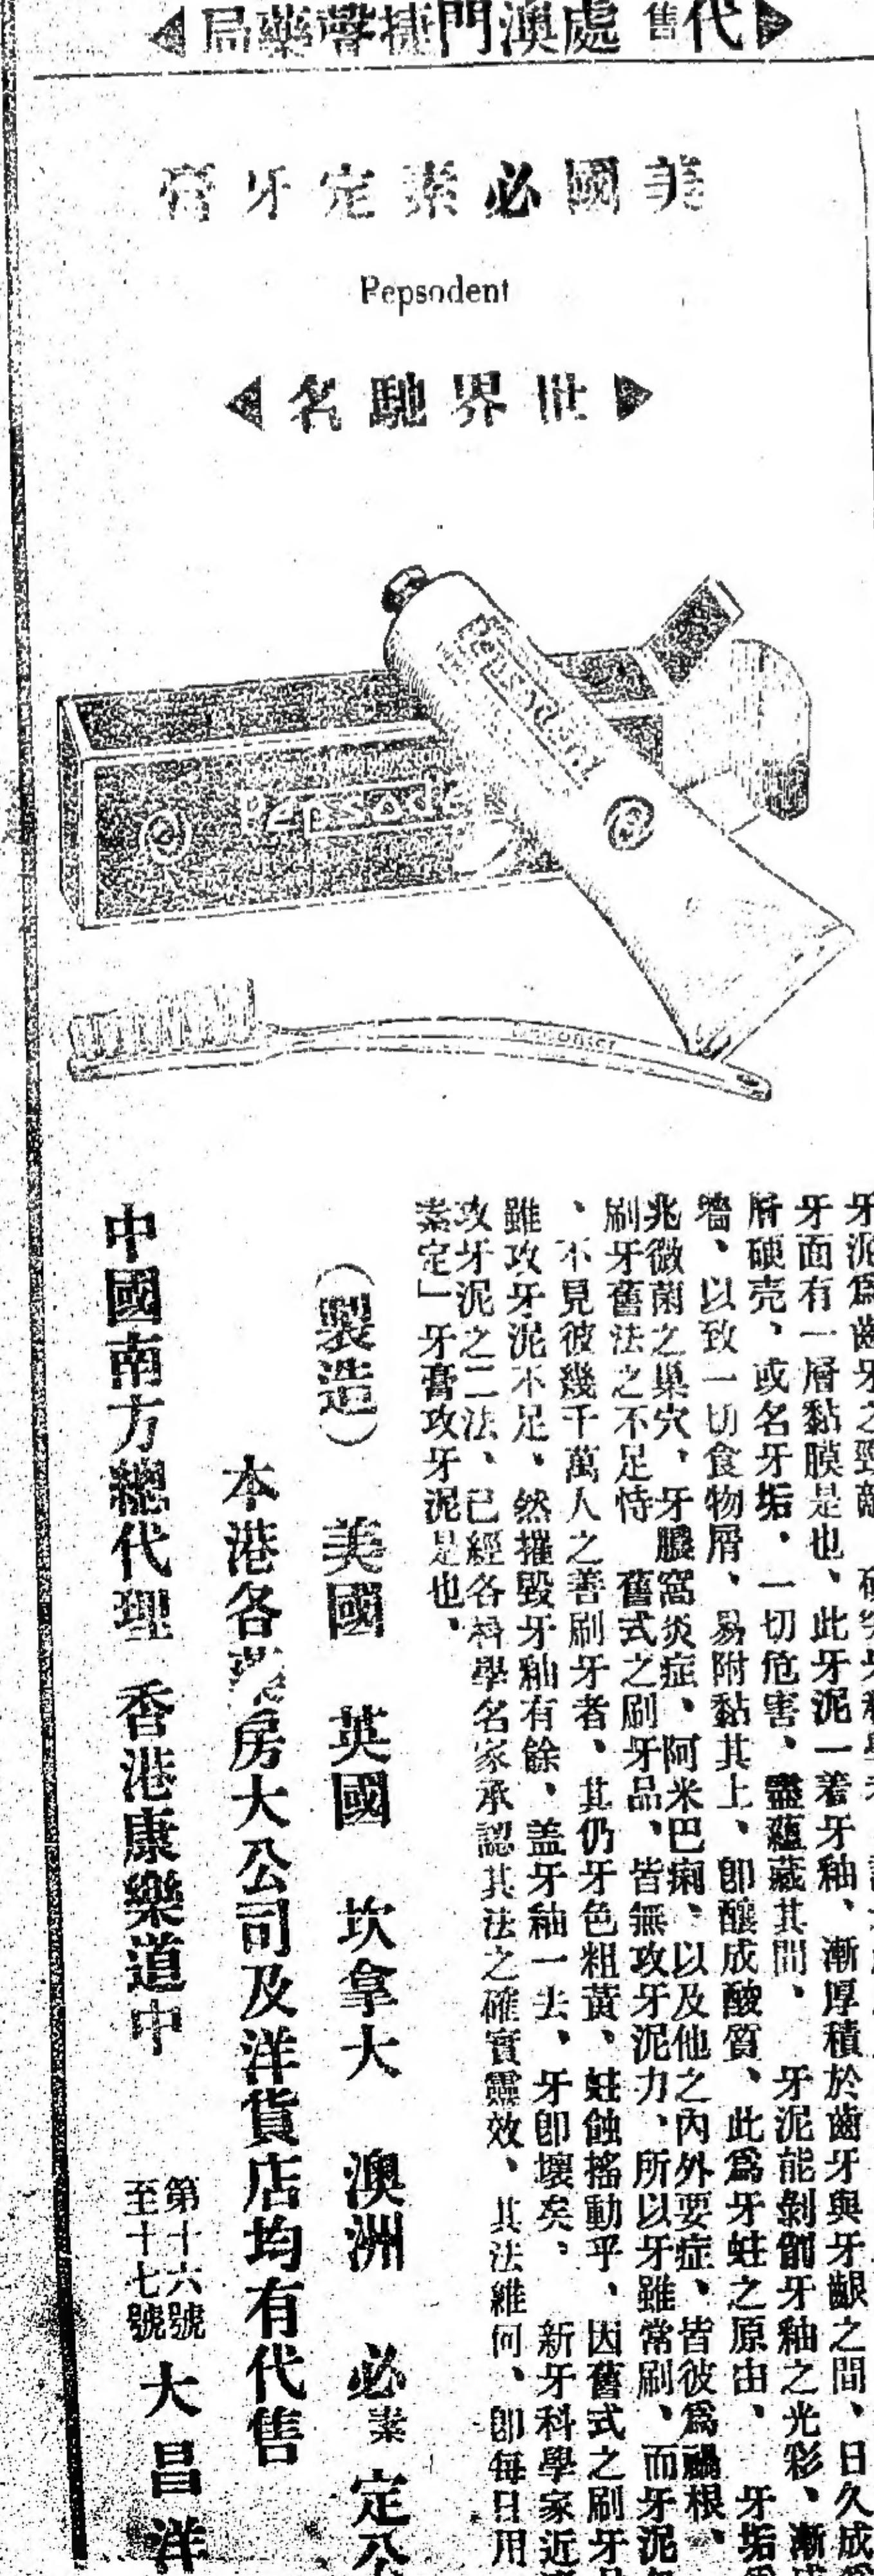 代售處澳門捷聲藥局
美國必素定牙膏
Pepsodent
世界馳名
Pepsodent
Pepsode
牙泥爲齒牙之勁敵
牙面有一層黏膜是也、此牙泥一着牙釉、漸厚積於齒牙與牙齦之間、日久成
屑硬壳、或名牙垢、一切危害、盡蘊藏其間、牙泥能剝削牙釉之光彩、漸
牆、以致一切食物屑、易附黏其上、卽釀成酸質、此爲牙蛀之原由、牙垢
兆微菌之巢穴、牙膿窩炎症、阿米巴痢、以及他之內外要症、皆彼爲禍根、
刷牙舊法之不足恃 舊式之刷牙品、皆無攻牙泥力、所以牙雖常刷、而牙泥
、不見彼幾千萬人之善刷牙者、其仍牙色粗黃、蛀蝕搖動乎、因舊式之刷牙
雖攻牙泥不足、然摧毀牙釉有餘、盖牙釉一去、牙卽壞矣、新牙科學家近
攻牙泥之二法、已經各科學名家承認其法之確實靈效、其法維何、卽每日用
素定」牙膏攻牙泥是也、
（製造）美國 英國 坎拿大 澳洲 必素定公
本港各藥房大公司及洋貨店均有代售
中國南方總代理 香港康樂道中 第十六號至十七號 大昌洋